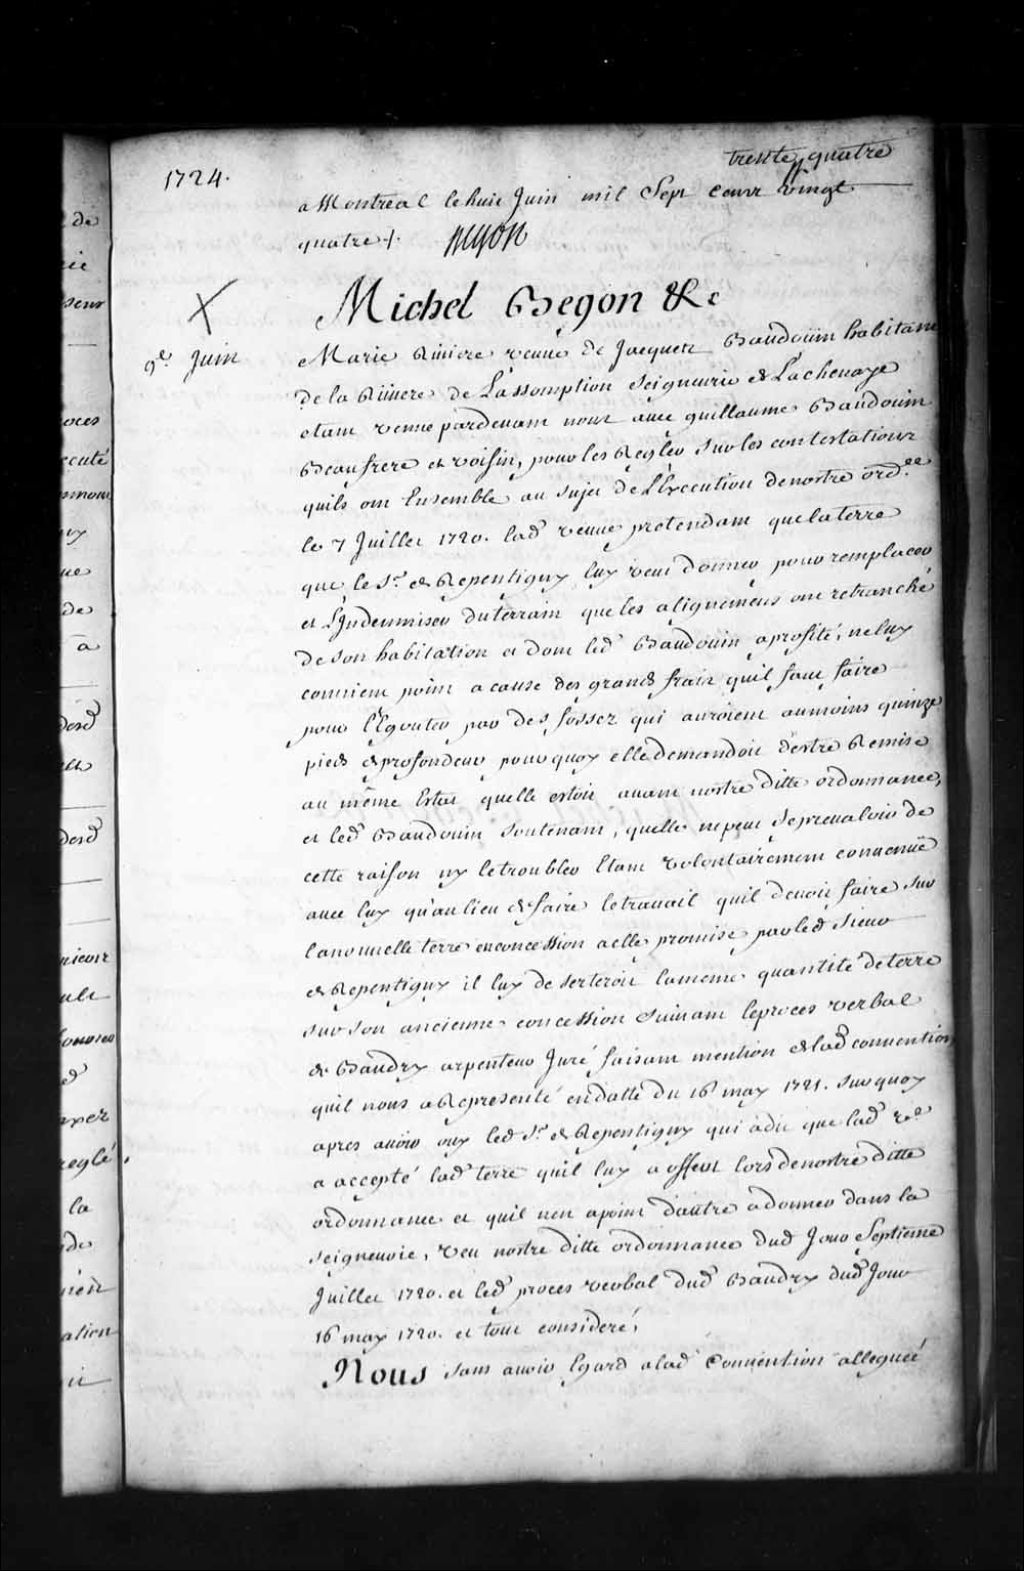 trente quatre
1724.
a Montreal le huit Juin mil Sept cent vingt
quatre ./. Begon
Michel Begon &c
9e. Juin
Marie Riviere veuve de Jacques Baudouin habitant
de la Riviere de Lassomption Seigneurie de Lachenaye
etant venue pardevant nous avec guillaume Baudouin
Beaufrere et voisin, pour les Regler sur les contestations
quils ont Ensemble au sujet de L'Execution de nostre ord.ce
le 7 Juillet 1720. lad. veuve pretendant que la terre
que le Sr. de Repentigny luy veut donner pour remplacer
et L'Indemniser du terrain que les alignemens ont retranché
de son habitation et dont led. Baudouin a profité, ne luy
convient point a cause des grands frais qu'il faut faire
pour l'Egouter par des fossez qui auroient au moins quinze
pieds de profondeur pourquoy elle demandoit d'estre Remise
au même Estat quelle estoit avant nostre ditte ordonnance,
et led. Baudouin soutenant, quelle ne peut se prevaloir de
cette raison ny le troubler Etant volontairement convenuë
avec luy qu'au lieu de faire le travail quil devoit faire sur
la nouvelle terre en concession a elle promise par led. Sieur
de Repentigny il luy deserteroit la meme quantité de terre
sur son ancienne concession suivant le proces verbal
de Baudry arpenteur Juré faisant mention de lad. convention
quil nous a Representé en datte du 16 may 1721. surquoy
apres avoir ouy led. Sr. de Repentigny qui a dit que lad. ve.
a accepté lad. terre quil luy a offert lors de nostre ditte
ordonnance et quil n'en a point d'autre a donner dans la
seigneurie, Veu nostre ditte ordonnance dud. Jour Septieme
Juillet 1720. et led. proces verbal dud. Baudry dud. Jour
16 may 1720. et tout consideré,
Nous sans avoir Egard a lad. Convention alleguée